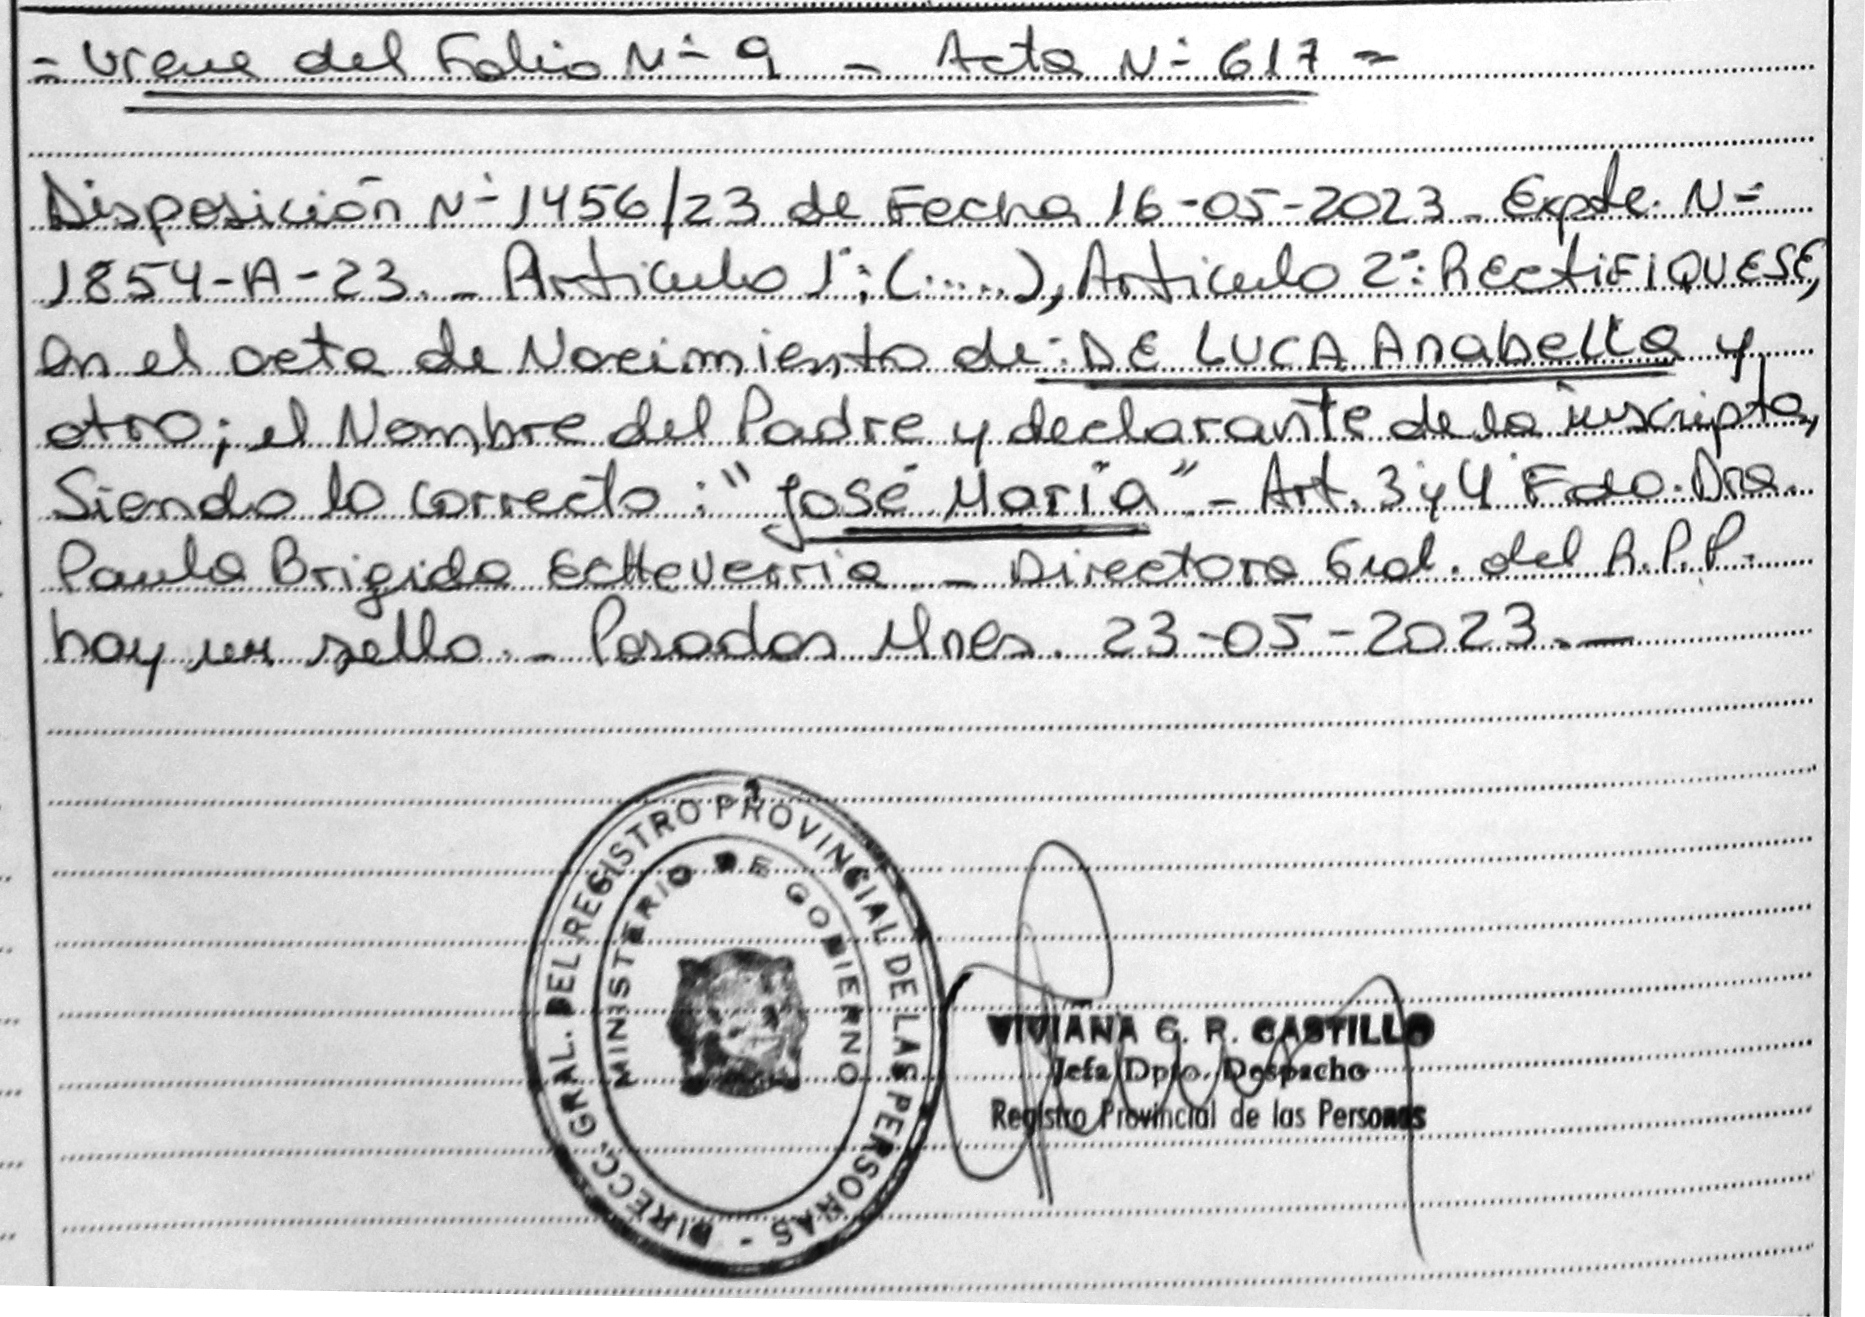 = Viene del Folio N° 9 - Acta N° 617 =
Disposición N° 1456/23 de Fecha 16-05-2023 - Expte. N°
1854-A-23. - Articulo 1°: (.....), Articulo 2°: RectiFIQUESE,
en el acta de Nacimiento de: DE LUCA Anabella y
otro; el Nombre del Padre y declarante de la inscripta,
Siendo lo correcto: "José María" - Art. 3° y 4° Fdo. Dra.
Paula Brigida Echeverria - Directora Gral. del R.P.P.
hay un sello. - Posadas Mnes. 23-05-2023. -
DIRECC. GRAL. DEL REGISTRO PROVINCIAL DE LAS PERSONAS -
MINISTERIO DE GOBIERNO
VIVIANA G. R. CASTILLO
Jefa Dpto. Despacho
Registro Provincial de las Personas